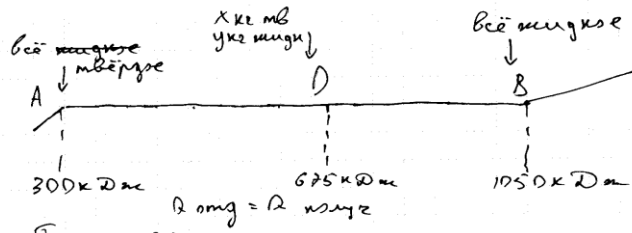 всё жидкое твёрдое
х кг тв
у кг жидк
всё жидкое
A D B
300 кДж 675 кДж 1050 кДж
Q отд = Q получ